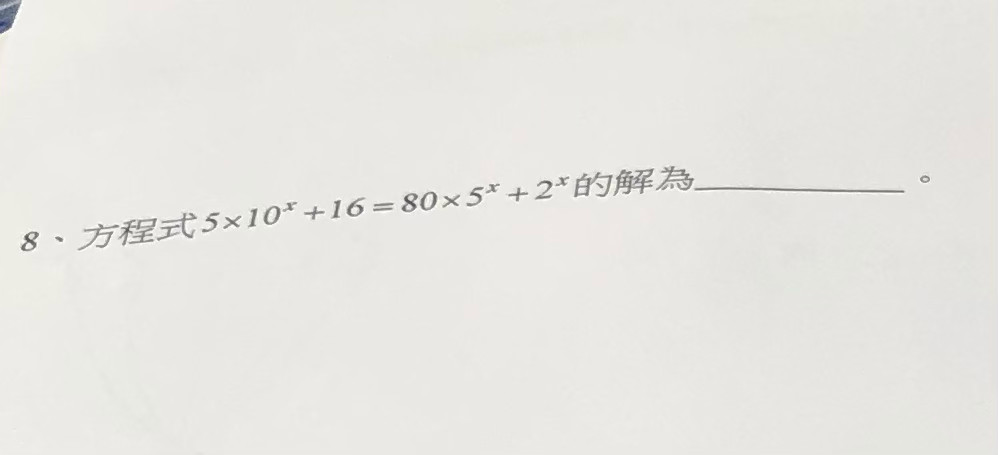 8、方程式5×10ˣ+16=80×5ˣ+2ˣ的解為__________。